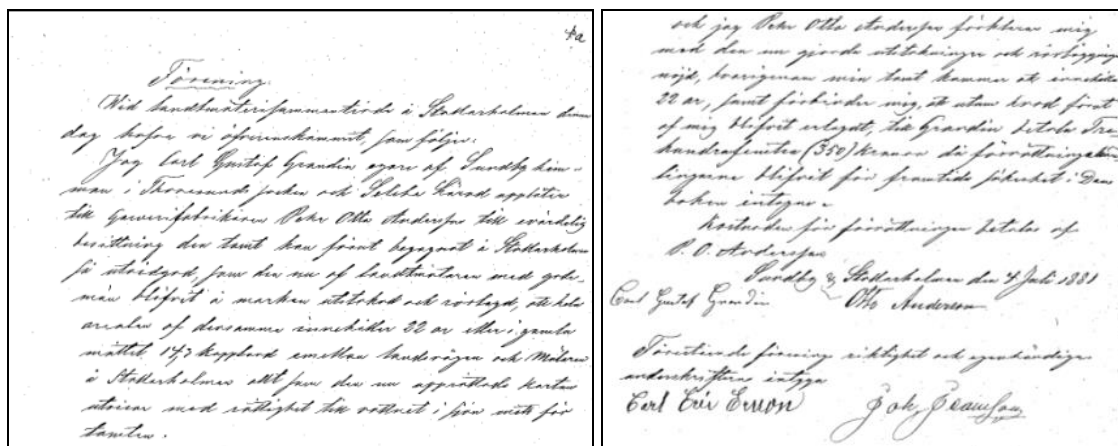 4a
Förening.
Wid landtmäterisammanträde i Stallarholmen denna
dag hafva vi öfverenskommit, som följer:
Jag Carl Gustaf Grandin egare af Sundby hem-
man i Thoresunds socken och Selebo Härad upplåter
till Garverifabrikören Pehr Otto Andersson till evärdelig
besittning den tomt han förut begagnat i Stallarholmen
så utvidgad, som den nu af landtmätaren med gode-
män blifvit å marken utstakad och rörlagd, att hela
arealen af densamma innehåller 22 ar eller i gamla
måttet 14,3 kappland emellan landsvägen och Mälaren
å Stallarholmen allt som den nu upprättade kartan
utvisar med rättighet till vattnet i sjön midt för
tomten.
och jag Pehr Otto Andersson förklarar mig
med den nu gjorda utstakningen och rörläggningen
nöjd, hvarigenom min tomt kommer att innehålla
22 ar, samt förbinder mig, att utom hvad förut
af mig blifvit erlagdt, till Grandin betala Tre
hundrafemtio (350) kronor då förrättningshand
lingarne blifvit för framtida säkerhet i Dom
boken intagne.
Kostnaden för förrättningen betalas af
P. O. Andersson
Sundby & Stallarholmen den 4 Juli 1881
Carl Gustaf Grandin Otto Anderson
Förestående förening riktighet och egenhändiga
underskriftens intyga
Carl Erson Joh. Fransson